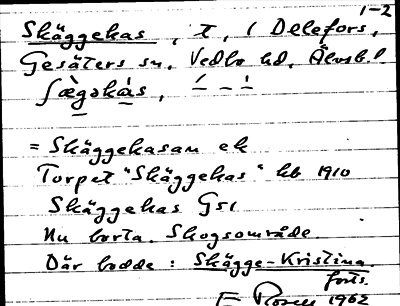 1-2
Skäggekas, t, i Delefors,
Gesäters sn. Vedbo hd. Älvsb.l.
= Skäggekasan ek
Torpet "Skäggekas" hb 1910
Skäggekas Gsl
Nu borta. Skogsområde
Där bodde: Skägge-Kristina.
forts.
1962